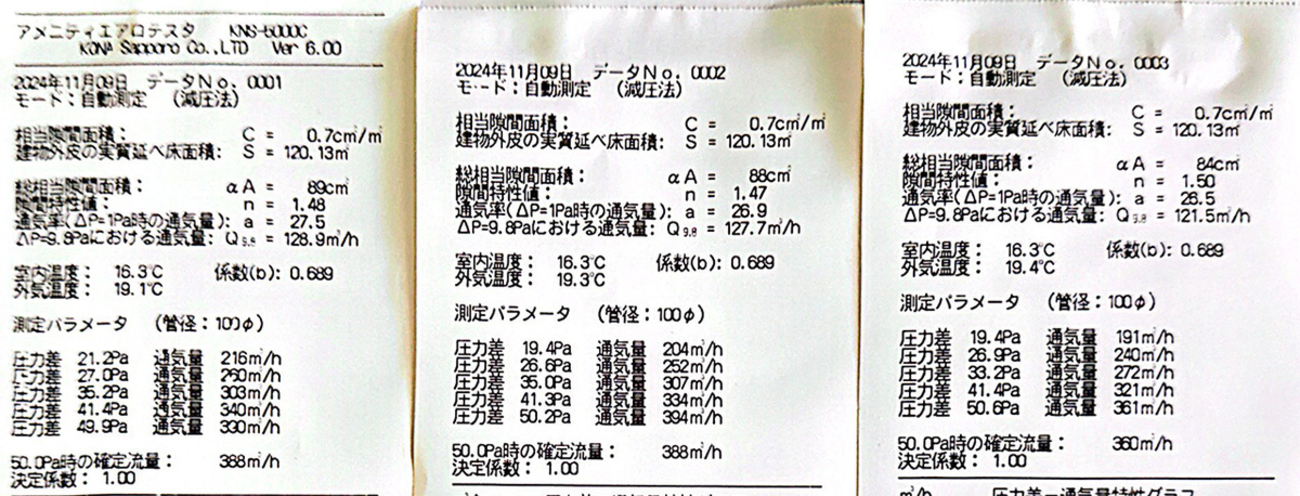 アメニティエアロテスタ KNS-5000C
KONA Sapporo Co.,LTD Ver 6.00
2024年11月09日 データNo. 0001
モード：自動測定 （減圧法）
相当隙間面積： C = 0.7cm²/m²
建物外皮の実質延べ床面積： S = 120.13m²
総相当隙間面積： αA = 89cm²
隙間特性値： n = 1.48
通気率(ΔP=1Pa時の通気量)： a = 27.5
ΔP=9.8Paにおける通気量： Q9.8 = 128.9m³/h
室内温度： 16.3℃ 係数(b)： 0.689
外気温度： 19.1℃
測定パラメータ （管径：100φ）
圧力差 21.2Pa 通気量 216m³/h
圧力差 27.0Pa 通気量 260m³/h
圧力差 35.2Pa 通気量 303m³/h
圧力差 41.4Pa 通気量 340m³/h
圧力差 49.9Pa 通気量 390m³/h
50.0Pa時の確定流量： 388m³/h
決定係数： 1.00
2024年11月09日 データNo. 0002
モード：自動測定 （減圧法）
相当隙間面積： C = 0.7cm²/m²
建物外皮の実質延べ床面積： S = 120.13m²
総相当隙間面積： αA = 88cm²
隙間特性値： n = 1.47
通気率(ΔP=1Pa時の通気量)： a = 26.9
ΔP=9.8Paにおける通気量： Q9.8 = 127.7m³/h
室内温度： 16.3℃ 係数(b)： 0.689
外気温度： 19.3℃
測定パラメータ （管径：100φ）
圧力差 19.4Pa 通気量 204m³/h
圧力差 26.6Pa 通気量 252m³/h
圧力差 35.0Pa 通気量 307m³/h
圧力差 41.3Pa 通気量 334m³/h
圧力差 50.2Pa 通気量 394m³/h
50.0Pa時の確定流量： 388m³/h
決定係数： 1.00
2024年11月09日 データNo. 0003
モード：自動測定 （減圧法）
相当隙間面積： C = 0.7cm²/m²
建物外皮の実質延べ床面積： S = 120.13m²
総相当隙間面積： αA = 84cm²
隙間特性値： n = 1.50
通気率(ΔP=1Pa時の通気量)： a = 26.5
ΔP=9.8Paにおける通気量： Q9.8 = 121.5m³/h
室内温度： 16.3℃ 係数(b)： 0.689
外気温度： 19.4℃
測定パラメータ （管径：100φ）
圧力差 19.4Pa 通気量 191m³/h
圧力差 26.9Pa 通気量 240m³/h
圧力差 33.2Pa 通気量 272m³/h
圧力差 41.4Pa 通気量 321m³/h
圧力差 50.6Pa 通気量 361m³/h
50.0Pa時の確定流量： 360m³/h
決定係数： 1.00
m³/h 圧力差－通気量特性グラフ